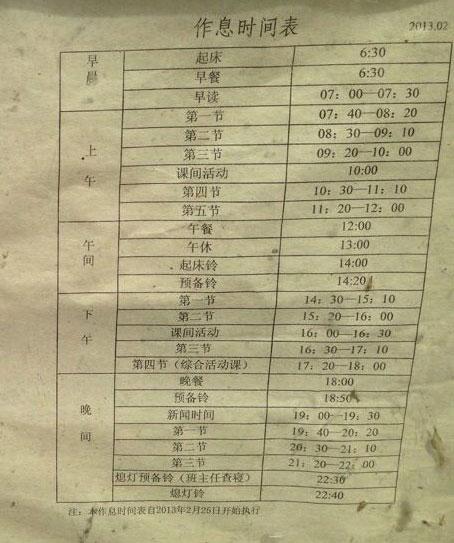 作息时间表
2013.02
早晨
起床 6:30
早餐 6:30
早读 07：00—07：30
上午
第一节 07：40—08：20
第二节 08：30—09：10
第三节 09：20—10：00
课间活动 10:00
第四节 10：30—11：10
第五节 11：20—12：00
午间
午餐 12:00
午休 13:00
起床铃 14:00
预备铃 14:20
下午
第一节 14：30—15：10
第二节 15：20—16：00
课间活动 16：00—16：30
第三节 16：30—17：10
第四节（综合活动课） 17：20—18：00
晚间
晚餐 18:00
预备铃 18:50
新闻时间 19：00—19：30
第一节 19：40—20：20
第二节 20：30—21：10
第三节 21：20—22：00
熄灯预备铃（班主任查寝） 22:30
熄灯铃 22:40
注：本作息时间表自2013年2月25日开始执行